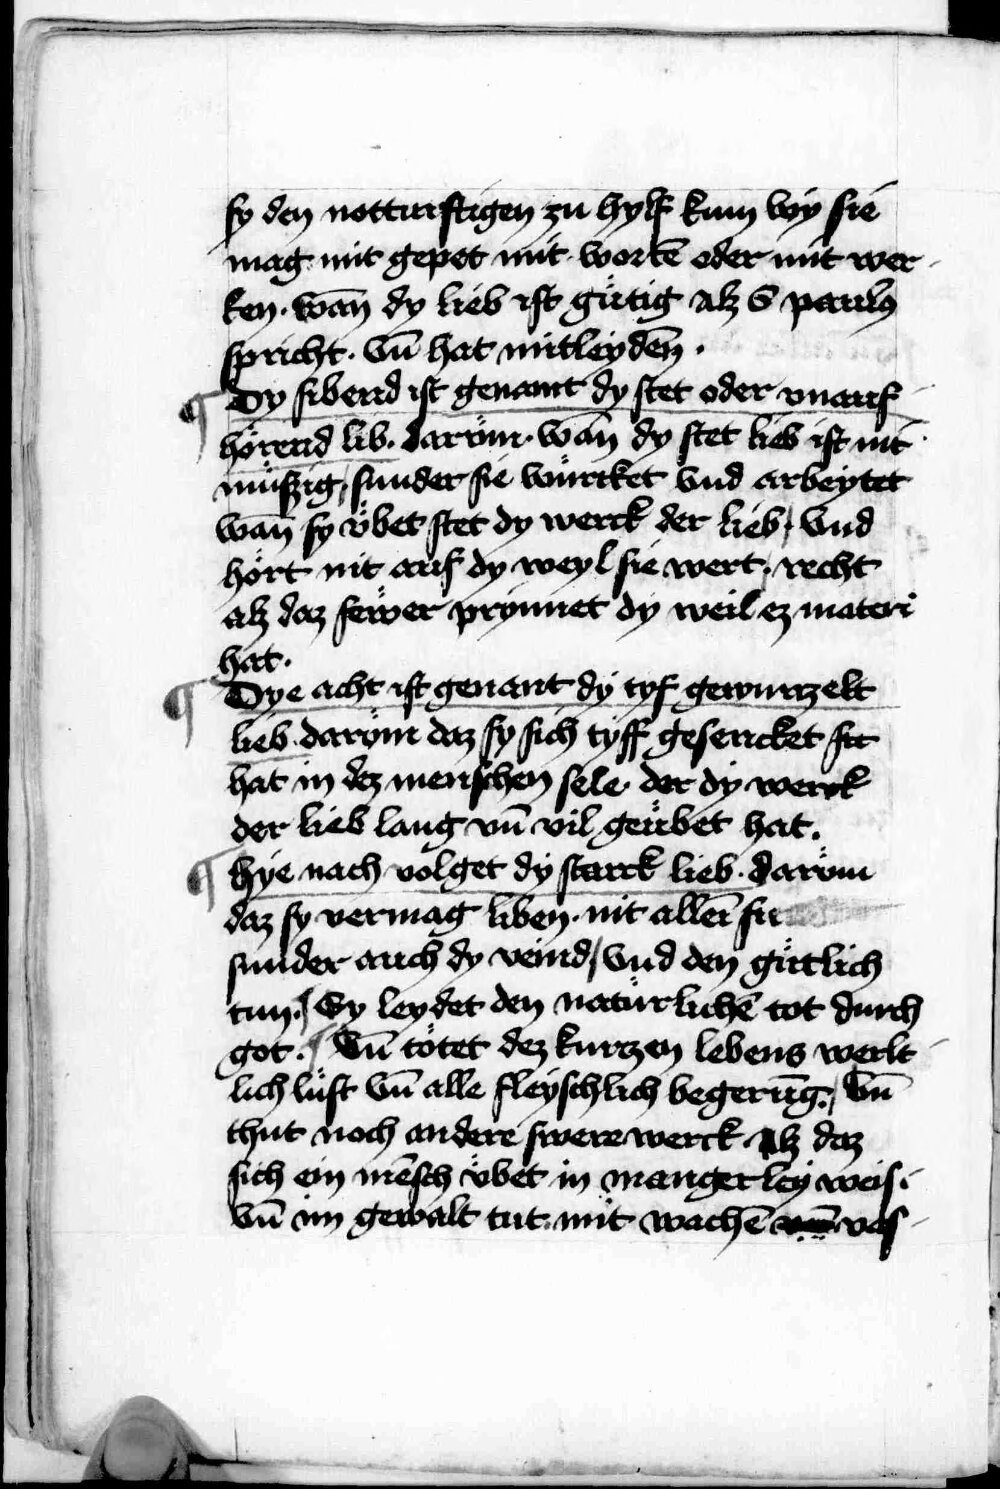 sy den notturftigen zu hylf kum wy sie
mag mit gepet mit wortē oder mit wer-
ken. wañ dy lieb ist gütig alz S paulꝰ
spricht. vñ hat mitleydeñ.
¶ Dy sibend ist genant dy stet oder vnauf-
hörend lib. darüm. wañ dy stet lieb ist nit
müßzig, sunder sie würcket vnd arbeytet
wañ sy übet stet dy werck der lieb, vnd
hört nit auf dy weyl sie wert, recht
alz daz fewer prynnet dy weil ez materi
hat.
¶ Dye acht ist genant dy tyf gewurzelt
lieb. darüm daz sy sich tyff gesencket
hat in dez menschen sele. der dy werck
der lieb lang vñ vil geübet hat.
¶ Hye nach volget dy starck lieb. darüm
daz sy vermag liben. nit alleī
sunder auch dy veind, vnd den gütlich
tun. Sy leydet den natürlichē tot durch
got. Vñ tötet dez kurzen lebens werlt-
lich lüst vñ alle fleyschlich begerūg. Vñ
thut noch andere swere werck alz daz
sich ein mēsch übet in mangerley weis.
vñ im gewalt tut. mit wachē vas-